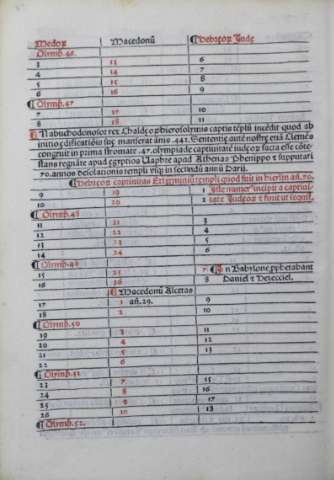 Medoꝝ Macedonũ Hebreoꝝ Jude
Olimb. 46.
3 13 6
4 14 7
5 15 8
6 16 9
Olimb. 47
7 17 10
8 18 11
Nabuchodonosor rex Chaldeoꝝ hierosolymis captis templũ incẽdit quod ab
initio edificatiõis suę manserat añis .442. Sentẽtie autẽ nostrę etiã Clemẽs
congruit in primo stromate .47. olympiade captiuitatẽ iudeoꝝ factã esse cõte-
stans regnãte apud egyptios Vaphre apud Athenas Phenippo ⁊ supputari
.70. annos desolationis templi vsqꝫ in secundũ annũ Darij.
Hebreoꝝ captiuitas Et ignominiũ templi quod fuit in hierlm añ. 70.
9 19 1 Iste numerꝰ incipit a captiui-
10 20 2 tate Judeoꝝ ⁊ finit ut sequit.
Olimb. 48
11 21 3
12 22 4
13 23 5
14 24 6
Olimb. 49
15 25 7 In Babylone ꝓphetabant
16 26 8 Daniel ⁊ Hezeciel.
Macedonũ Alcetas
17 1 añ. 29. 9
18 2 10
Olimb. 50
19 3 11
20 4 12
21 5 13
22 6 14
Olimb. 51
23 7 15
24 8 16
25 9 17
26 10 18
Olimb. 52.